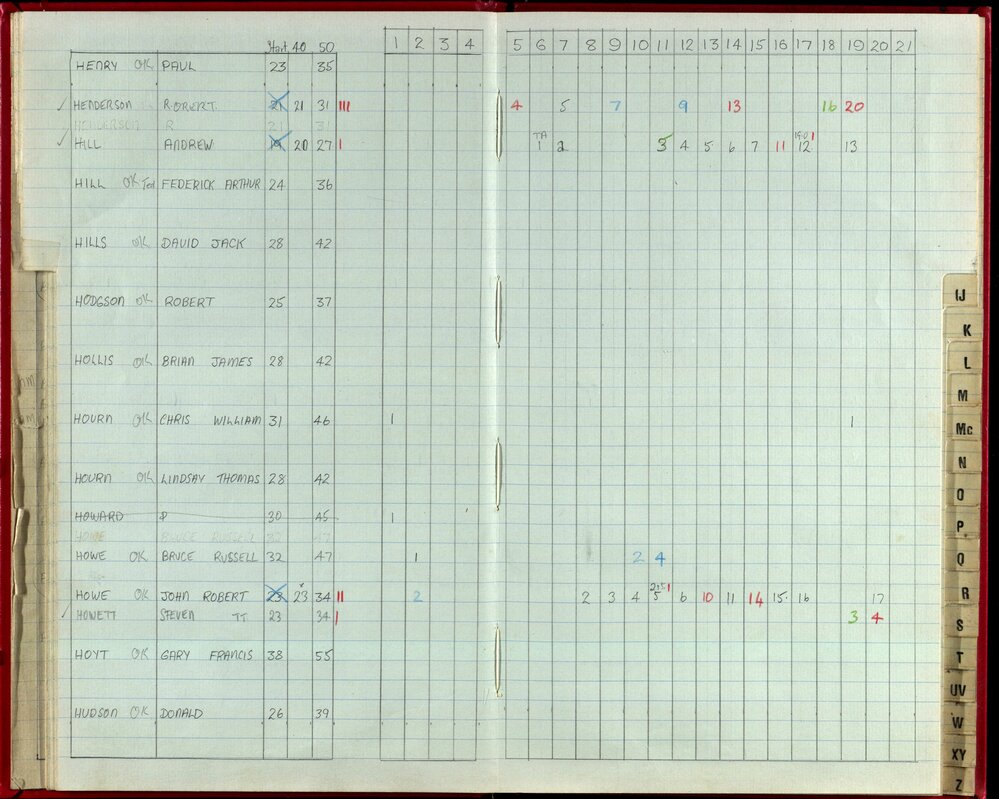 Start 40 50 1 2 3 4 5 6 7 8 9 10 11 12 13 14 15 16 17 18 19 20 21
HENRY OK PAUL 23 35
✓ HENDERSON ROBERT 21 21 31 III 4 5 7 9 13 16 20
HENDERSON R 21 31
✓ HILL ANDREW 19 20 27 I TA 1 2 3 4 5 6 7 11 12 13
HILL OK Ted FEDERICK ARTHUR 24 36
HILLS OK DAVID JACK 28 42
HODGSON OK ROBERT 25 37
HOLLIS OK BRIAN JAMES 28 42
HOURN OK CHRIS WILLIAM 31 46 1 1
HOURN OK LINDSAY THOMAS 28 42
HOWARD P 30 45 1
HOWE BRUCE RUSSELL 32 47
HOWE OK BRUCE RUSSELL 32 47 1 2 4
HOWE OK JOHN ROBERT 23 23 34 II 2 2 3 4 5 6 10 11 14 15 16 17
✓ HOWETT STEVEN TT 23 34 I 3 4
HOYT OK GARY FRANCIS 38 55
HUDSON OK DONALD 26 39
IJ
K
L
M
Mc
N
O
P
Q
R
S
T
UV
W
XY
Z